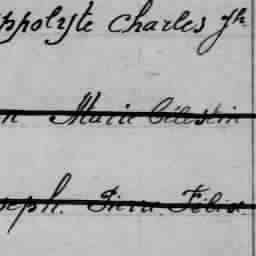 ppolyte Charles Jh
n Marie Célestin
seph. Pierre Félix.